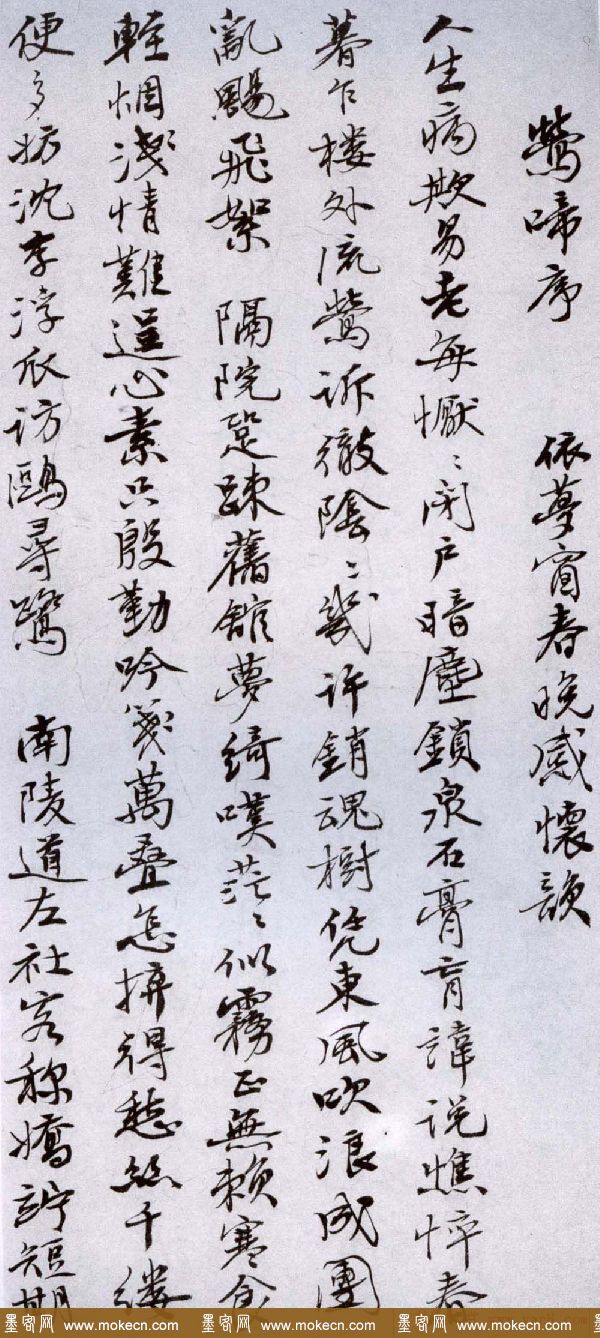 鶯啼序 依夢窗春晚感懷韻
人生病欺易老每懨〻閉户暗塵鎖泉石膏肓諱说憔悴春
暮乍樓外流鶯诉徹陰〻幾许銷魂樹凭東風吹浪成團
亂颺飛絮 隔院疎舊館夢綺嘆茫〻似霧正無賴寒食
輕惆淺情難逞心素只殷勤吟箋萬叠怎拚得愁絲千缕
便多妨沈李浮瓜访鷗尋鷺 南陵道左社客称嬌短期
墨客网 www.mokecn.com 墨客网 www.mokecn.com 墨客网 www.mokecn.com